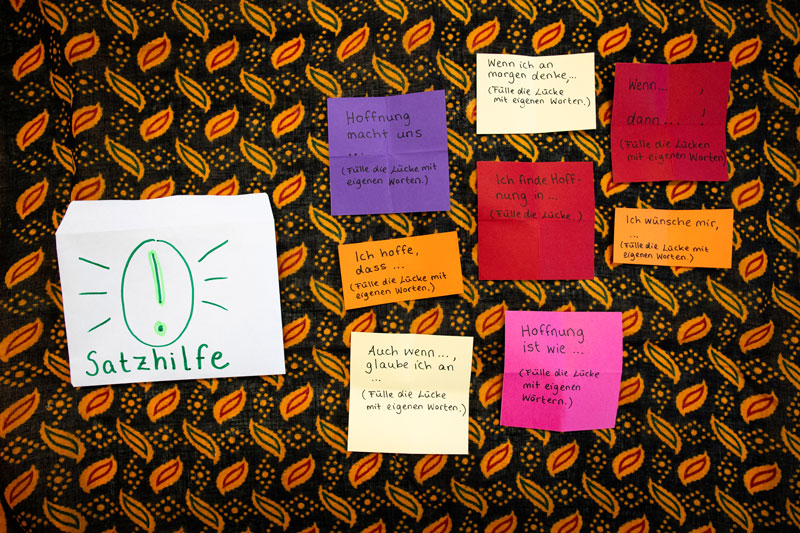 Satzhilfe
Hoffnung
macht uns
...
(Fülle die Lücke mit
eigenen Worten.)
Wenn ich an
morgen denke,...
(Fülle die Lücke
mit eigenen Worten.)
Wenn... ,
dann... !
(Fülle die Lücken
mit eigenen Worten)
Ich finde Hoff-
nung in ...
(Fülle die Lücke.)
Ich wünsche mir,
...
(Fülle die Lücke mit
eigenen Worten.)
Ich hoffe,
dass ...
(Fülle die Lücke mit
eigenen Worten.)
Auch wenn...,
glaube ich an
...
(Fülle die Lücke
mit eigenen Worten.)
Hoffnung
ist wie ...
(Fülle die Lücke
mit eigenen
Wörtern.)